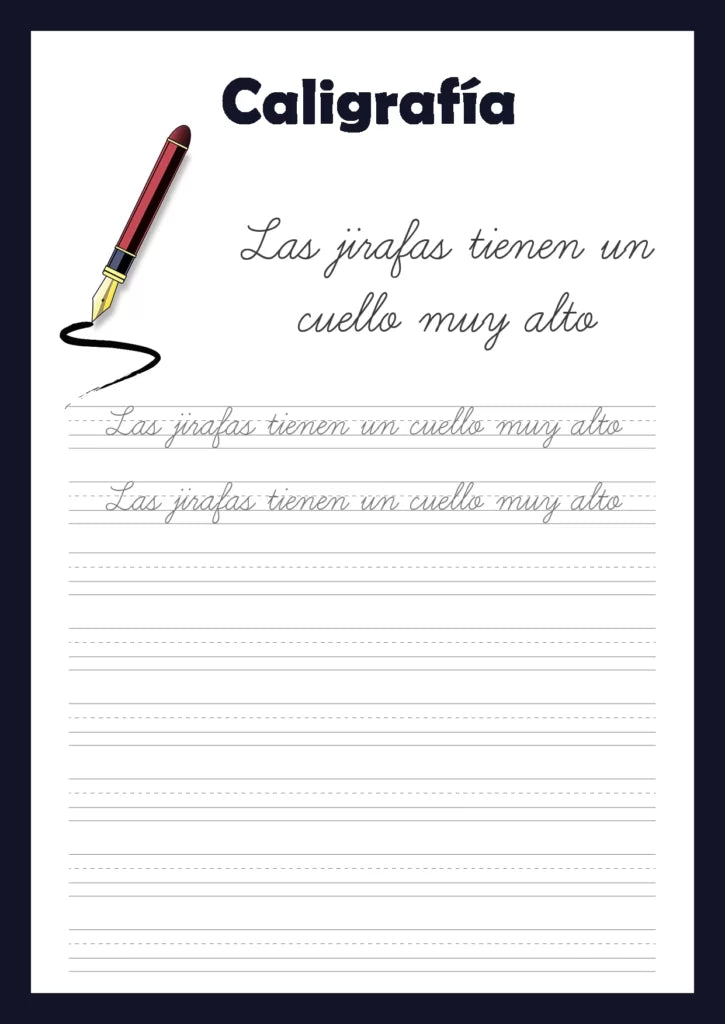 Caligrafía
Las jirafas tienen un
cuello muy alto
Las jirafas tienen un cuello muy alto
Las jirafas tienen un cuello muy alto